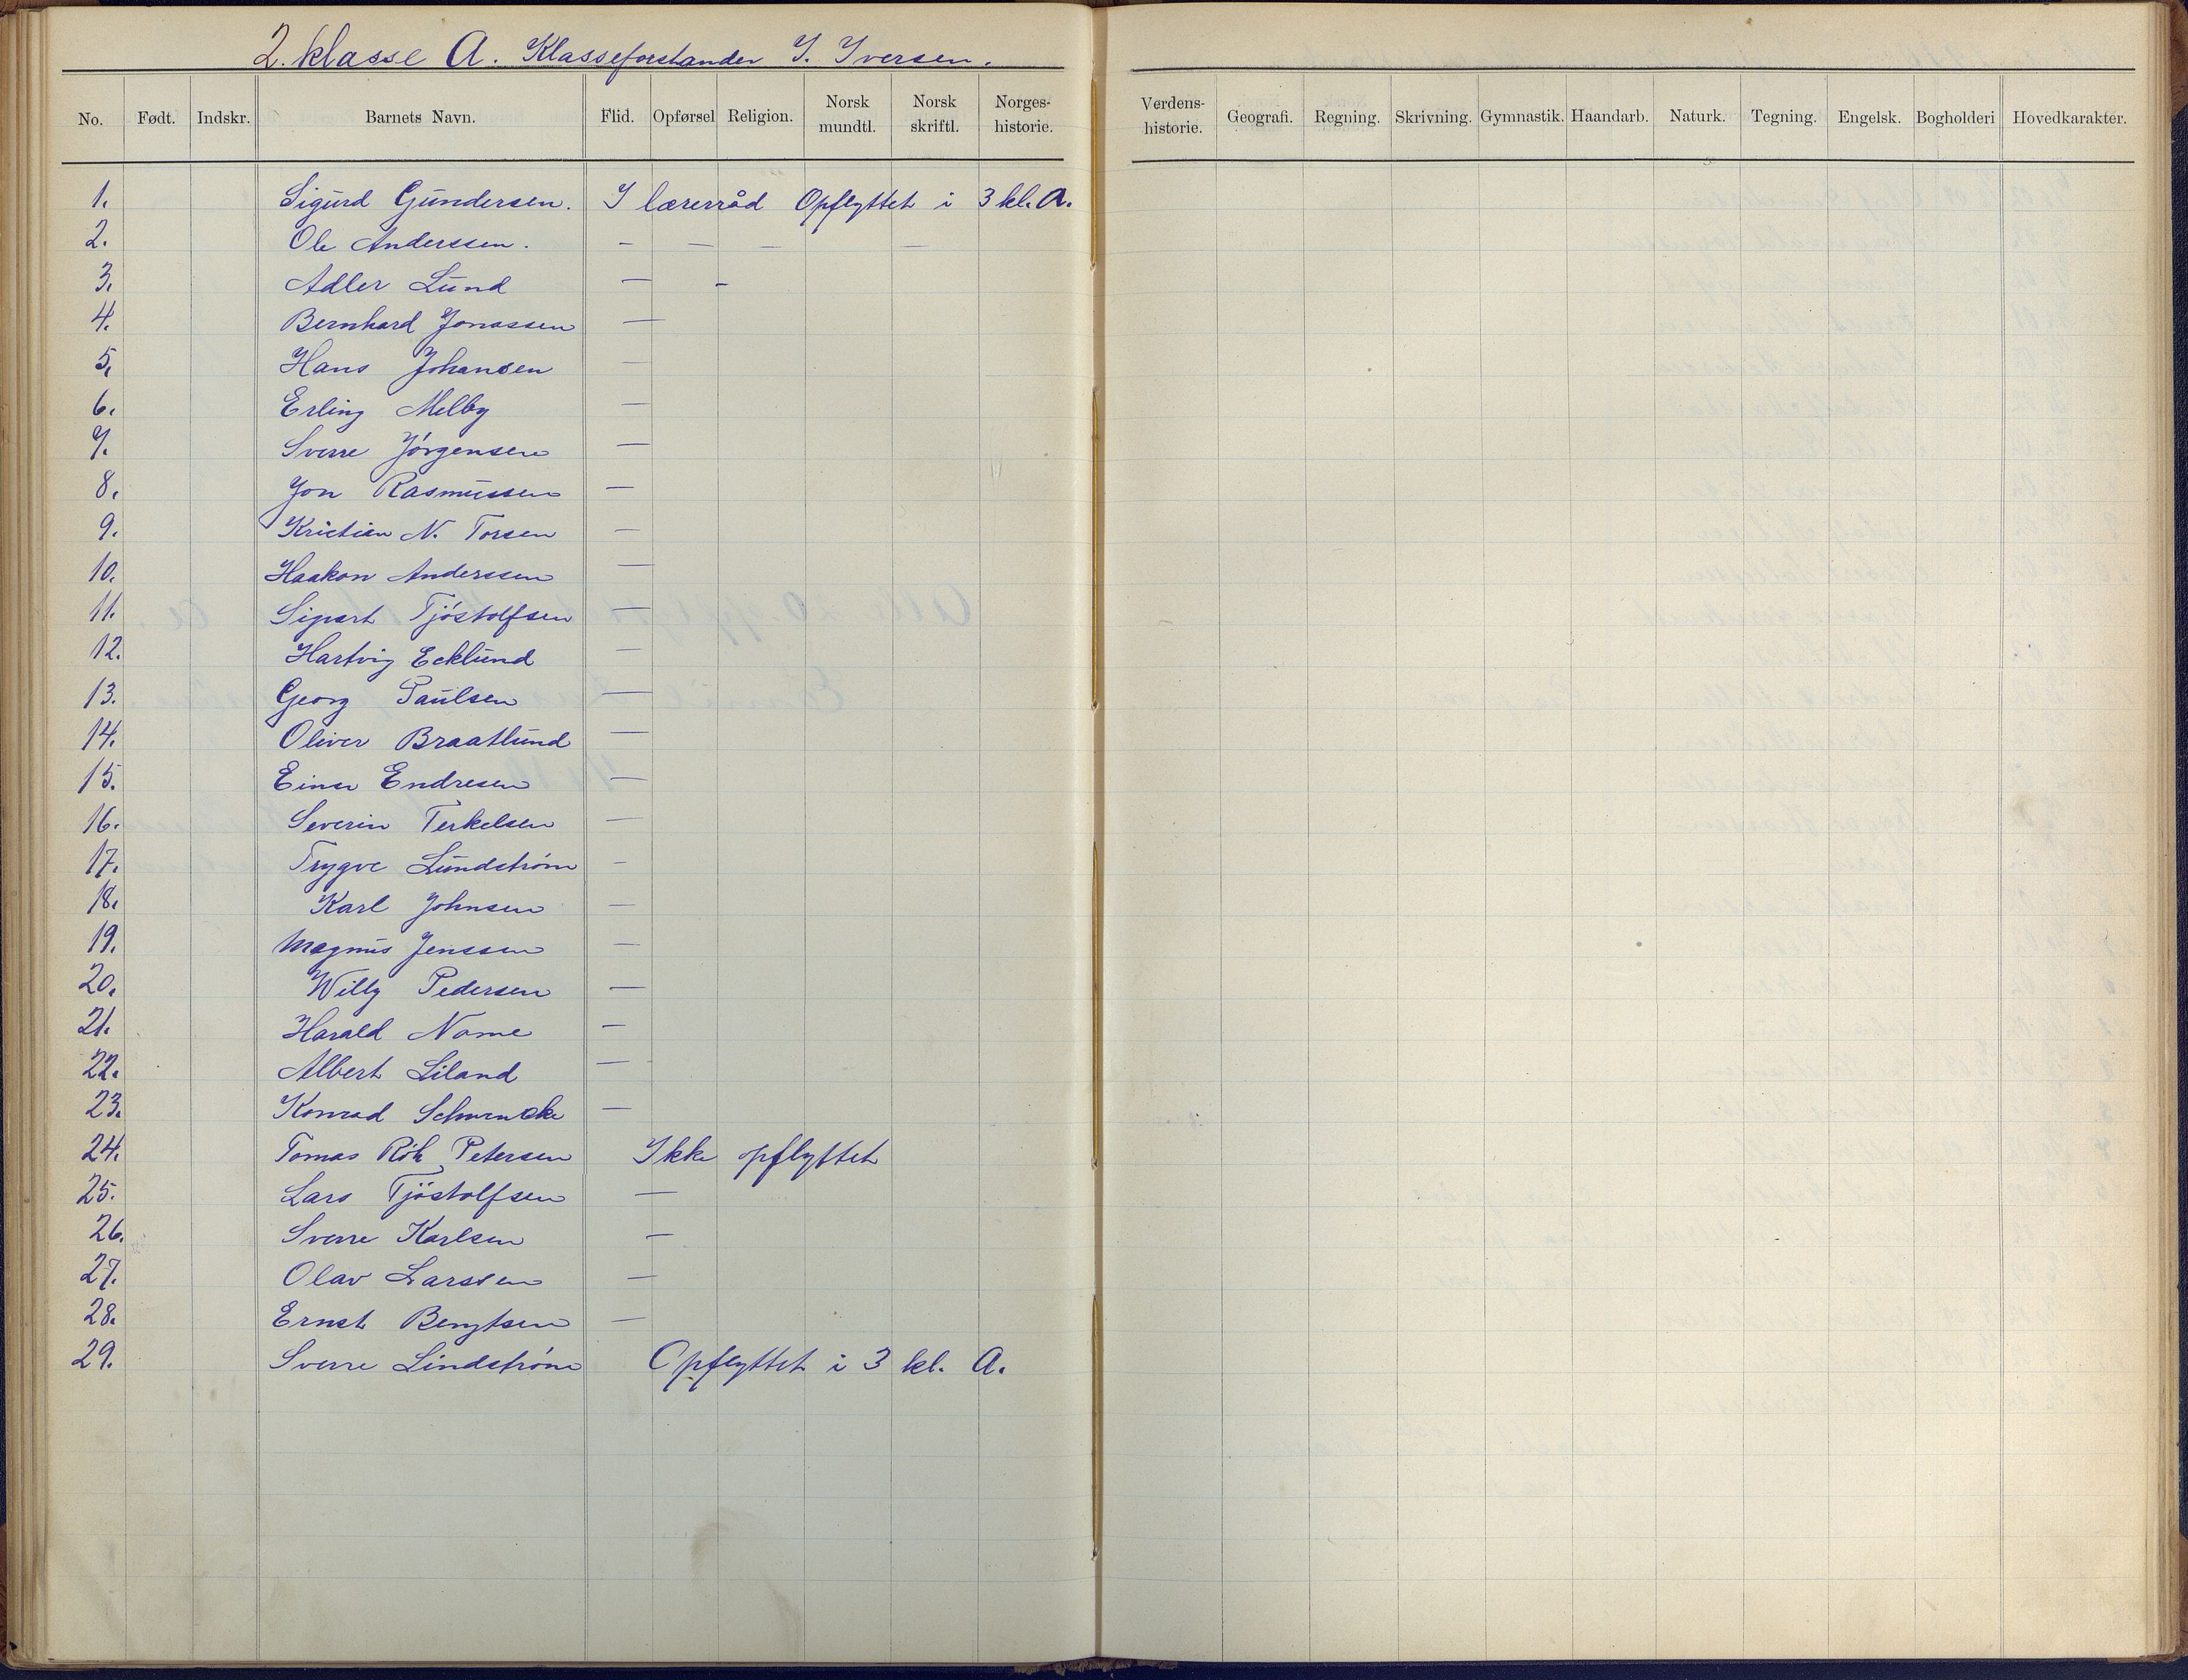 2. klasse A. Klasseforstander I. Iversen.
No. Født. Indskr. Barnets Navn. Flid. Opførsel Religion. Norsk mundtl. Norsk skriftl. Norges-historie. Verdens-historie. Geografi. Regning. Skrivning. Gymnastik. Haandarb. Naturk. Tegning. Engelsk. Bogholderi Hovedkarakter.
1. Sigurd Gundersen. I lærerråd Opflyttet i 3 kl. A.
2. Ole Anderssen. — — — —
3. Adler Lund — -
4. Bernhard Jonassen —
5. Hans Johansen —
6. Erling Melby —
7. Sverre Jörgensen —
8. Jon Rasmussen —
9. Kristian N. Torsen —
10. Haakon Anderssen —
11. Sigvart Tjöstolfsen —
12. Hartvig Ecklund —
13. Georg Paulsen —
14. Oliver Braatlund —
15. Einar Endresen —
16. Severin Terkelsen —
17. Trygve Lundström —
18. Karl Johnsen —
19. Magnus Jenssen —
20. Willy Pedersen —
21. Harald Nome —
22. Albert Liland —
23. Konrad Schwencke —
24. Tomas Petersen Ikke opflyttet
25. Lars Tjöstolfsen —
26. Sverre Karlsen —
27. Olav Larssen —
28. Ernst Bengtsen —
29. Sverre Lindström Opflyttet i 3 kl. A.